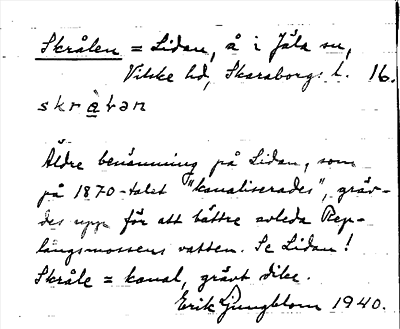 Skrålen = Lidan, å i Jäla sn,
Vilske hd, Skaraborgs l. 16.
skràƚən
Äldre benämning på Lidan, som
på 1870-talet "kanaliserades", gräv-
des upp för att bättre avleda Rep-
långsmossens vatten. Se Lidan!
Skråle = kanal, grävt dike.
Erik Ljungblom 1940.